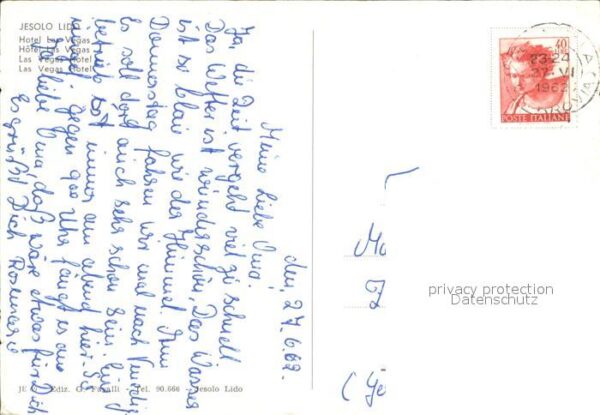 JESOLO LIDO
Hotel Las Vegas
Hôtel Las Vegas
Las Vegas Hotel
Las Vegas Hotel
den 27.6.62.
Meine liebe Oma!
Ja, die Zeit vergeht viel zu schnell
Das Wetter ist wunderschön, Das Wasser
ist so blau wie der Himmel. Am
Donnerstag fahren wir mal nach Venedig
Es soll dort auch sehr schön sein.
betrieb ist immer am abend hier. So
gegen 900 Uhr fängt es an
Ja liebe Oma, daß wäre etwas für Dich
Es grüßt Dich
Ediz. G. - Tel. 90.666 - Jesolo Lido
40
23-24
27-VI
1962
POSTE ITALIANE
privacy protection
Datenschutz